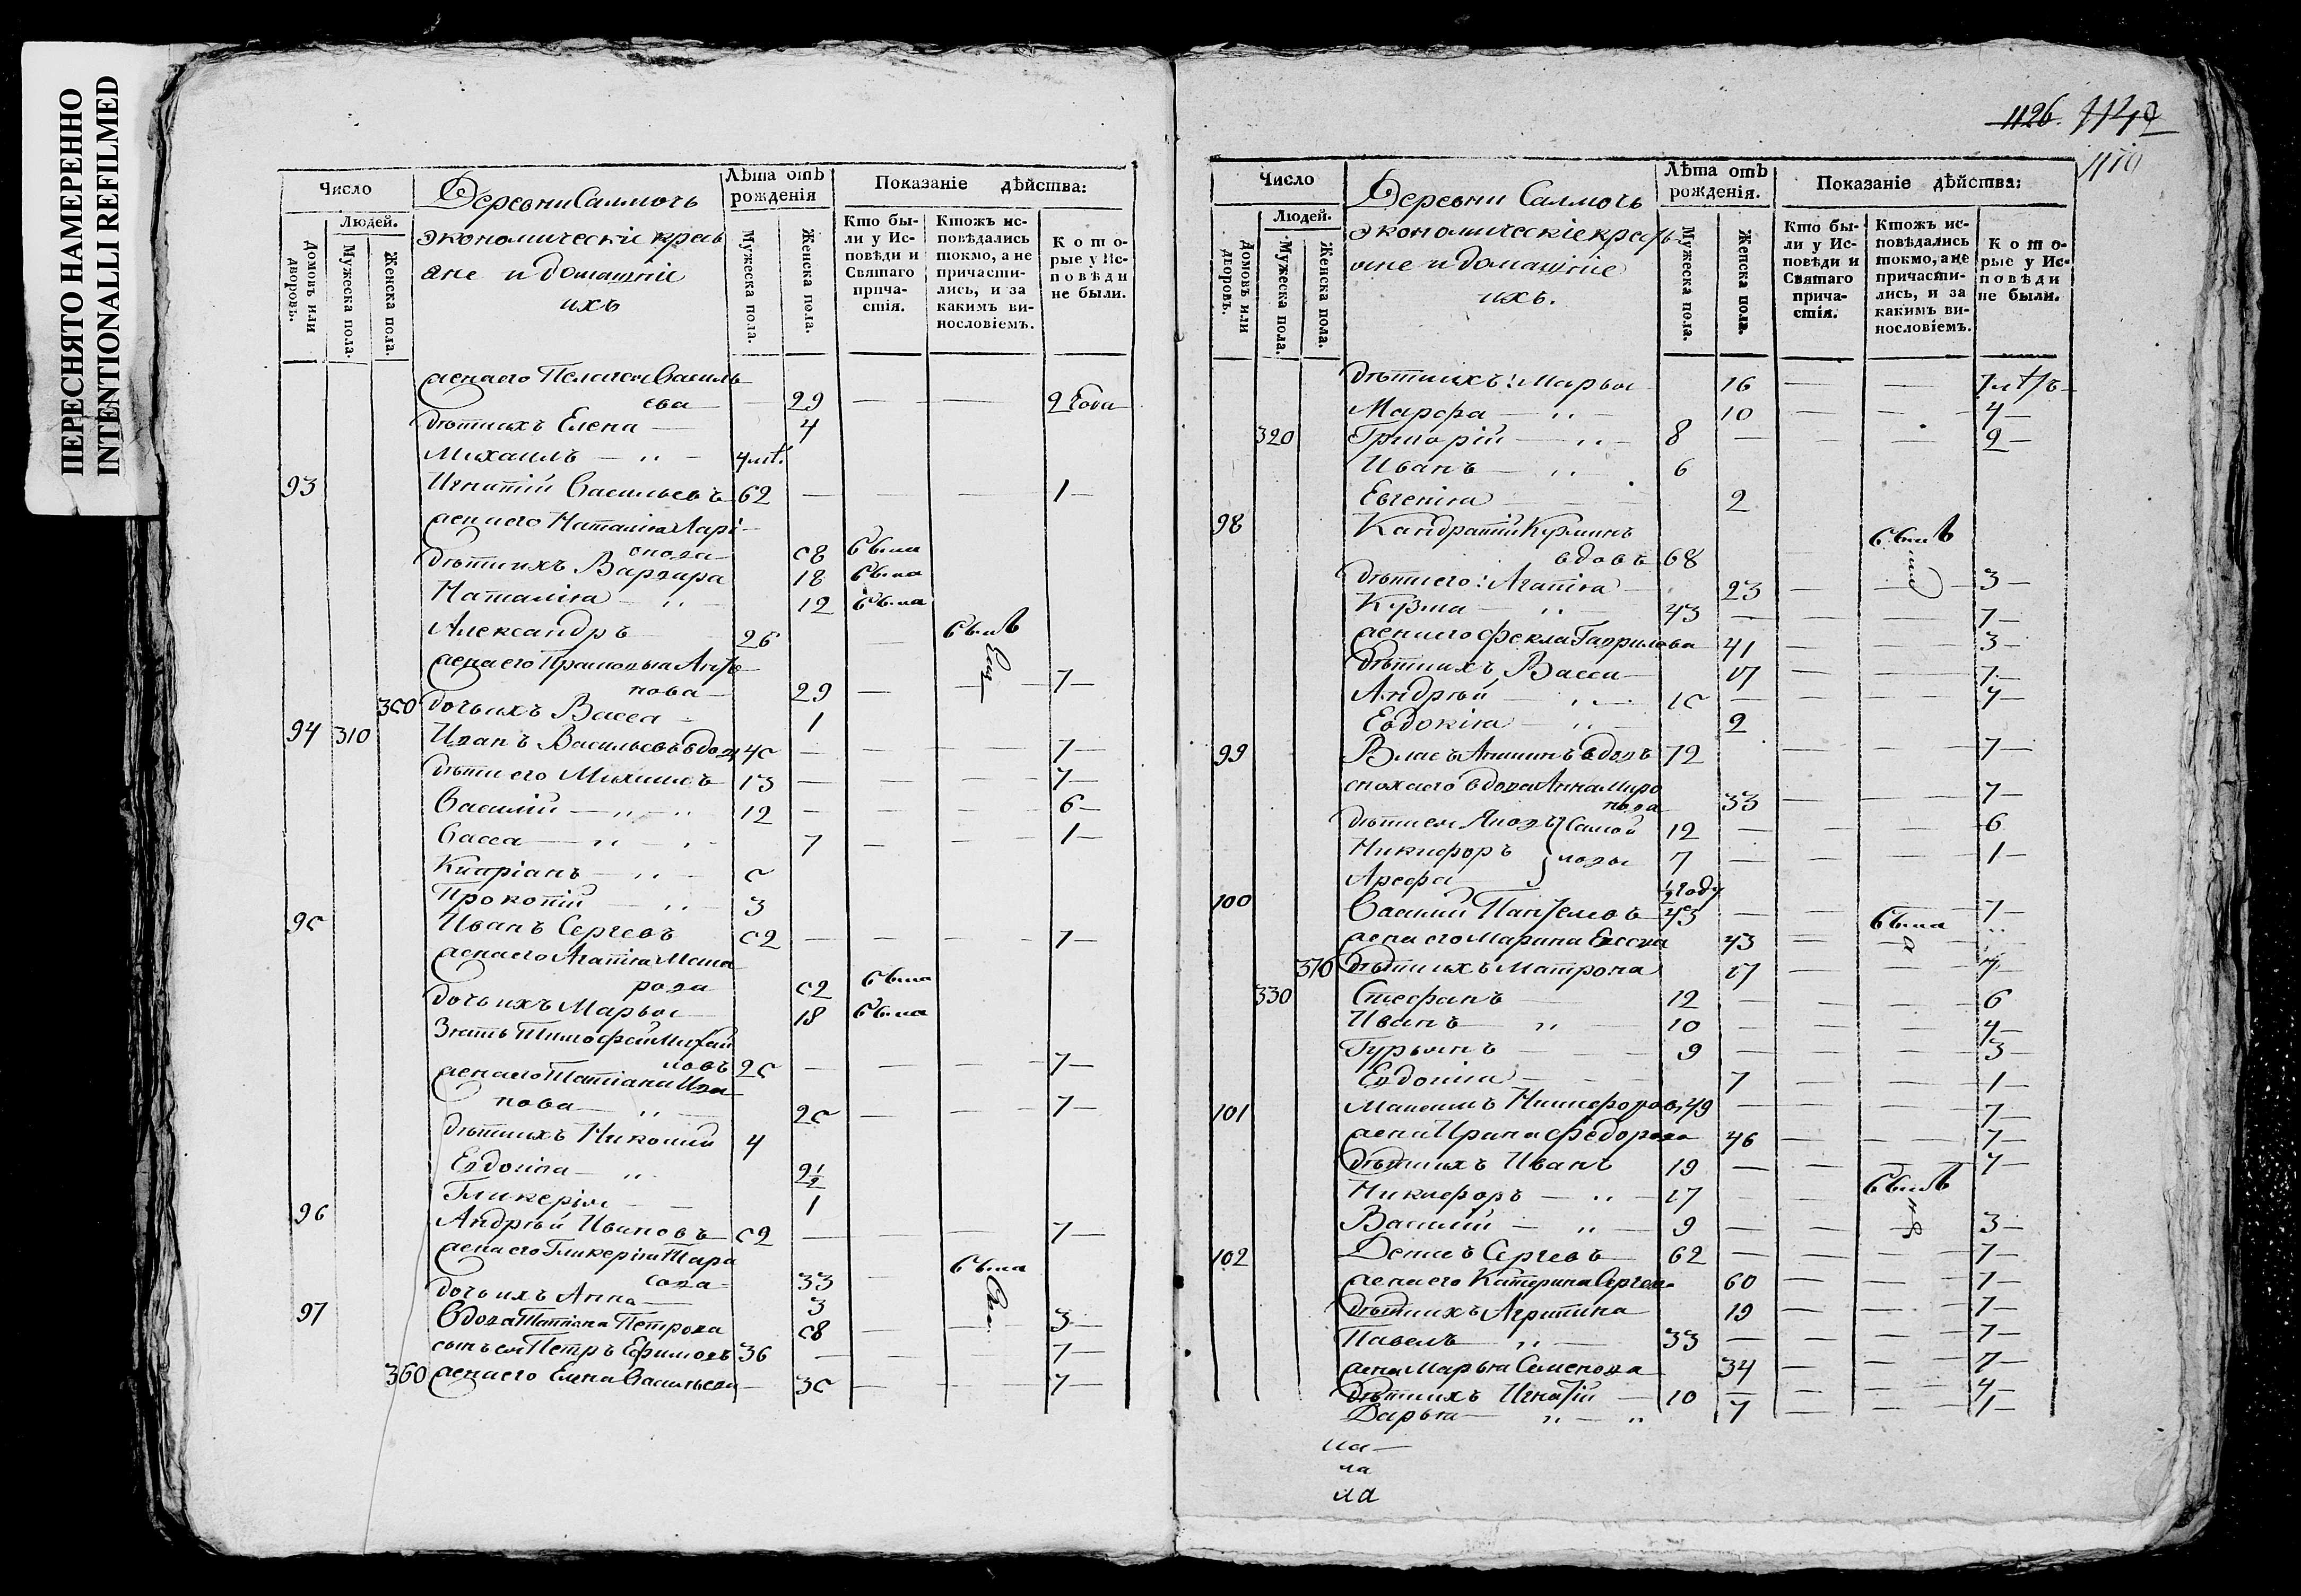 ПЕРЕСНЯТО НАМЕРЕННО
INTENTIONALLI REFILMED
1126.
Число
Людей.
Домовъ или дворовъ.
Мужеска пола.
Женска пола.
Деревни Салмочь
экономическіе кресть
яне и домашніе
ихъ
Лѣта отъ рожденія
Мужеска пола.
Женска пола.
Показаніе дѣйства:
Кто бы-
ли у Ис-
повѣди и
Святаго
прича-
стія.
Ктожъ ис-
повѣдались
токмо, а не
причасти-
лись, и за
какимъ ви-
нословіемъ.
Кото-
рые у Ис-
повѣди
не были.
жена его Пелагея Василь
ева — 29 — — 2 года
дѣти ихъ Елена — 4
Михаилъ — 4 лѣт.
93 Игнатій Васильевъ 62 — — — 1 —
жена его Наталіа Ларі
онова 58 была
дѣти ихъ Варвара 18 была
Наталіа — 12 была
Александръ 26 — былъ
жена его Прасковья
нова — 29 — — 7 —
350 дочь ихъ Васса — 1
94 310 Иванъ Васильевъ вдовъ 45 — — — 7 —
дѣти его Михаилъ 13 — — — 7 —
Василій — 12 — — — 6 —
Васса — 7 — — 1 —
Кипріанъ — 5
Прокопій — 3
95 Иванъ Сергеевъ 52 — — — 7 —
жена его Агапіа
52 была
дочь ихъ Марья 18 была
Зять Тимофей Михай
ловъ 25 — — — 7 —
жена его Татіана Ива
нова — 25 — — 7 —
дѣти ихъ Николай 4
Евдокіа — 2½
Гликерія — 1
96 Андрѣй Ивановъ 52 — — — 7 —
жена его Гликеріа Тара
сова 33 — была
дочь ихъ Анна — 3
97 Вдова Татіана Петрова 58 — — 3 —
сынъ ея Петръ Ефимовъ 36 — — — 7 —
360 жена его Елена Васильева 35 — — 7 —
Число
Людей.
Домовъ или дворовъ.
Мужеска пола.
Женска пола.
Деревни Салмочь
экономическіе кресть
яне и домашніе
ихъ.
Лѣта отъ рожденія.
Мужеска пола.
Женска пола.
Показаніе дѣйства:
Кто бы-
ли у Ис-
повѣди и
Святаго
прича-
стія.
Ктожъ ис-
повѣдались
токмо, а не
причасти-
лись, и за
какимъ ви-
нословіемъ.
Кото-
рые у Ис-
повѣди
не были.
дѣти ихъ: Марья 16 — — 7 лѣтъ —
Марфа — 10 — — 4 —
320 Григорій — 8 — — 2 —
Иванъ — 6
Евгеніа 2
98 Кандратій Кузминъ былъ
вдовъ 68
дѣти его: Агапіа — 23 — — 3 —
Кузма — 43 — — — 7 —
жена его Фекла Гаврилова 41 — — 3 —
дѣти ихъ Васса — 17 — — 7 —
Андрѣй — 15 — — — 4 —
Евдокіа — 2
99 Власъ вдовъ 72 — — 7 —
сноха его вдова Анна Миро
нова 33 — — 7 —
дѣти ея Яковъ 12 — — — 6
Никифоръ 7 — — — 1 —
Арефа — ½ году
100 Василій Пантелевъ 43 — — 7 —
жена его Марина 43 — была
370 дѣти ихъ Матрона 17 — —
330 Стефанъ — 12 — — — 6
Иванъ — 10 — — — 4 —
Гурьянъ — 9 — — — 3 —
Евдокіа — 7 — — 1 —
101 Максимъ Никифоровъ 49 — — — 7 —
жена Ирина Федорова 46 — — 7 —
дѣти ихъ Иванъ 19 — — — 4 —
Никифоръ — 17 — — былъ
Василій — 9 — — — 3 —
102 Денисъ Сергеевъ 62 — — — 7 —
жена его Катерина Сергеева 60 — — 7 —
дѣти ихъ Агрипина 19 — — 7 —
Павелъ — 33 — — — 7 —
жена Марья Семенова 34 — — 7 —
дѣти ихъ Игнатій 10 — — — 4 —
Дарья — 7 — — 1 —